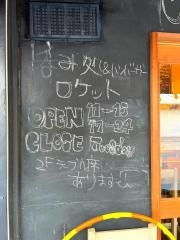 呑み処&ハンバーガー
ロケット
OPEN 11-15
17-24
CLOSE Tuesday
2Fテーブル席
あります